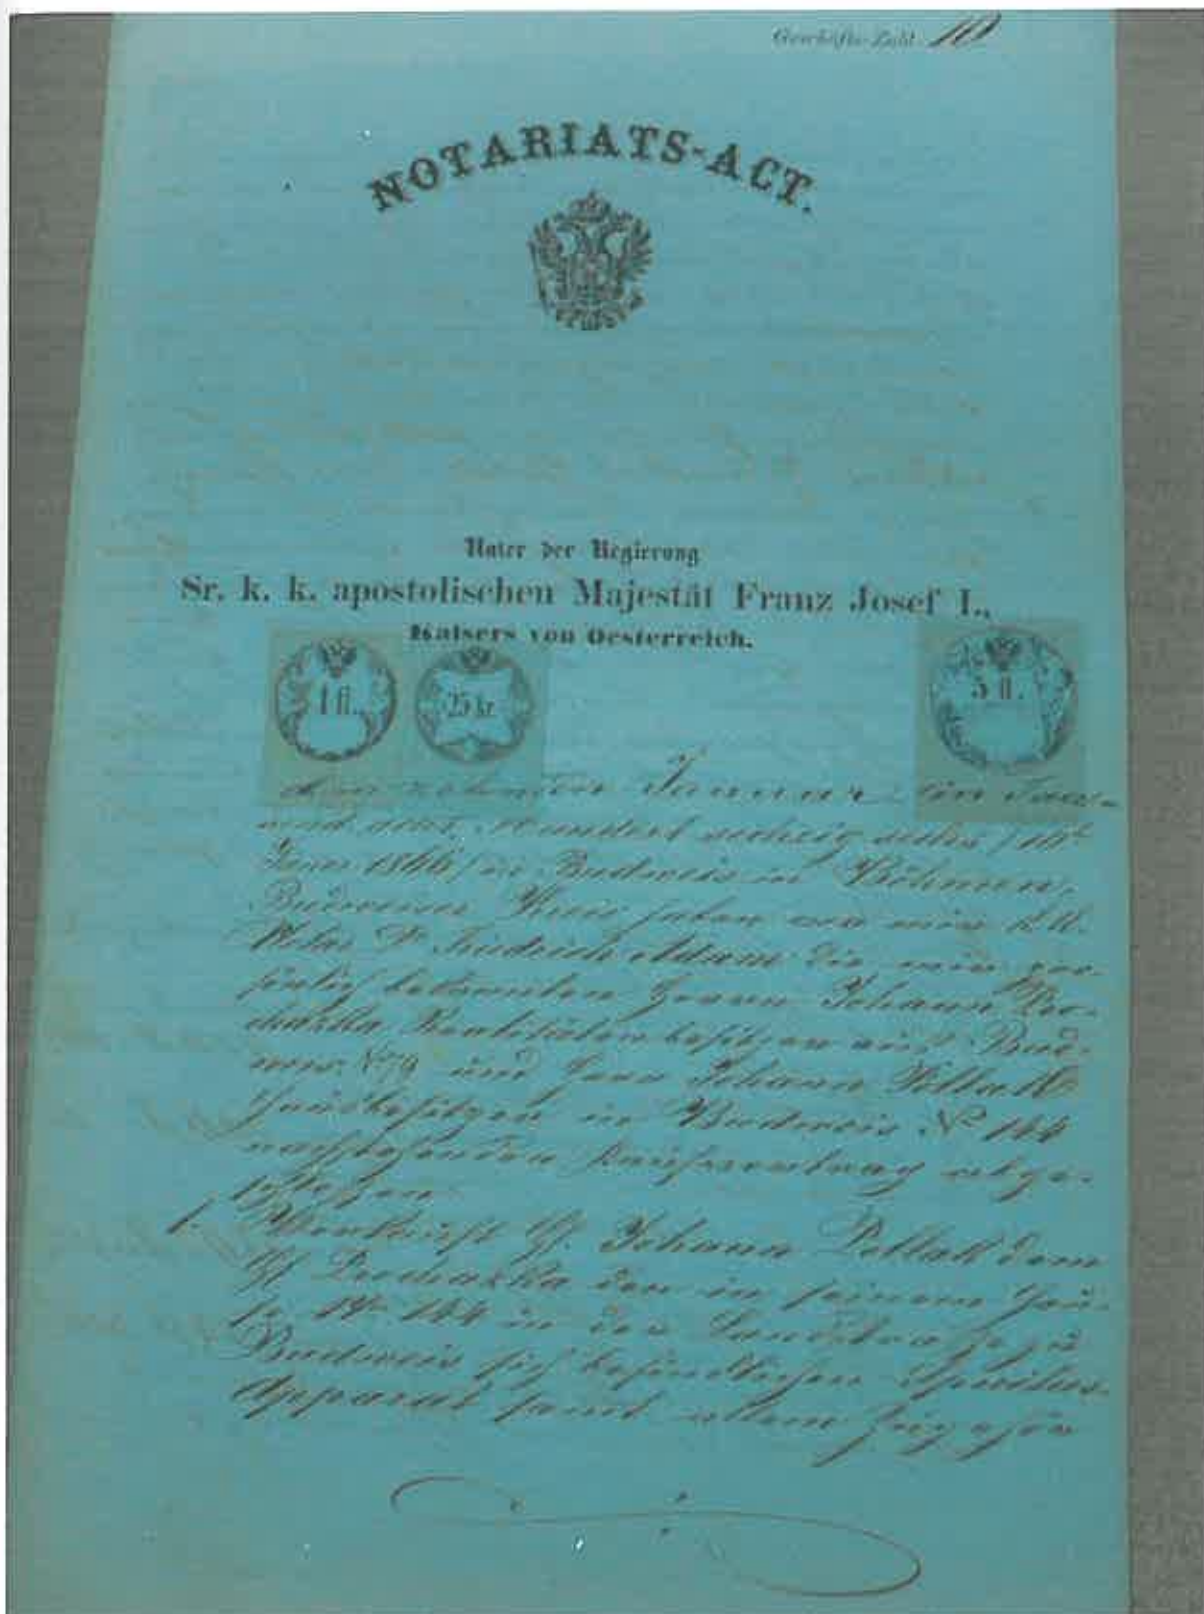 Geschäfts-Zahl 10
NOTARIATS-ACT.
Unter der Regierung
Sr. k. k. apostolischen Majestät Franz Josef I.,
Kaisers von Oesterreich.
1 fl.
25 kr.
5 fl.
den zehnten Januar Ein Tau-
send acht Hundert sechzig sechs / 10t
1866 / in Budweis in Böhmen,
Budweiser Kreis haben vor mir k. k.
Notar Dr Friedrich Adam die mir per-
sönlich bekannten Herrn Johann Pro-
chazka Realitätenbesitzer aus Bud-
weis No 9 und Herr Johann Pollak
Hausbesitzer in Budweis No 144
nachstehenden Kaufvertrag abge-
schlossen
1. Verkauft H. Johann Pollak dem
H. Prochazka den in seinem Hau-
se No 144 in der Landstrasse zu
Budweis sich befindlichen Spiritus-
Apparat samt allem Zugehör